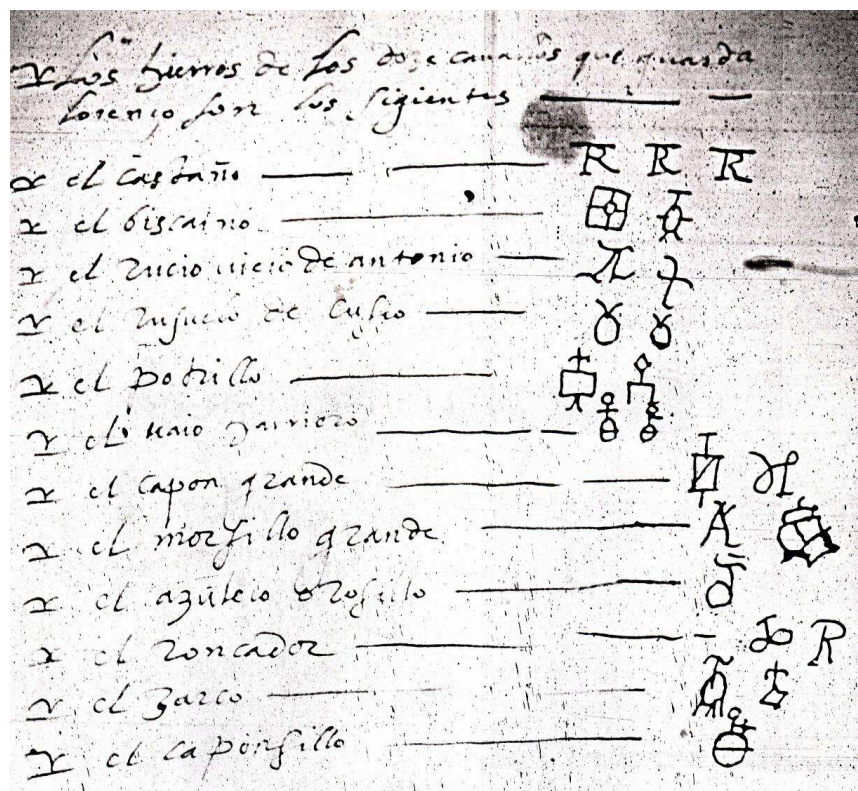 Los hierros de los doze cavallos que guarda
Lorenço son los sigientes
el castaño R R R
el biscaino
el rucio viejo de antonio
el de
el potrillo
el
el capon grande
el morsillo grande
el azulejo o rosillo
el roncador R
el zarco
el caponsillo